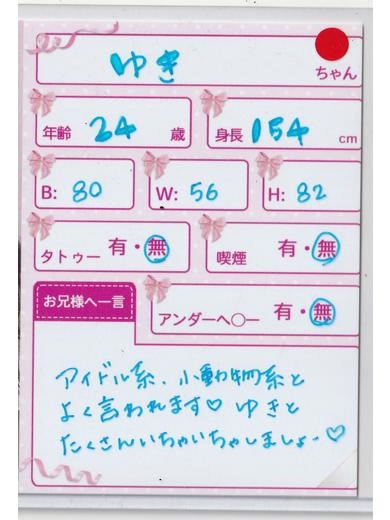 ゆき ちゃん
年齢 24 歳 身長 154 cm
B: 80 W: 56 H: 82
タトゥー 有・無 喫煙 有・無
お兄様へ一言 アンダーへ〇ー 有・無
アイドル系、小動物系と
よく言われます♡ ゆきと
たくさんいちゃいちゃしましょー♡